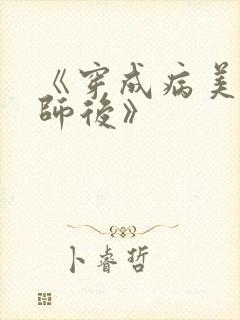 《穿成病美
師後》
卜睿哲